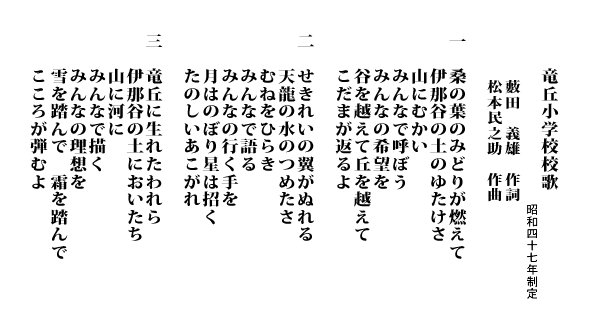 竜丘小学校校歌
昭和四十七年制定
薮田 義雄 作詞
松本民之助 作曲
一
桑の葉のみどりが燃えて
伊那谷の土のゆたけさ
山にむかい
みんなで呼ぼう
みんなの希望を
谷を越えて丘を越えて
こだまが返るよ
二
せきれいの翼がぬれる
天龍の水のつめたさ
むねをひらき
みんなで語る
みんなの行く手を
月はのぼり星は招く
たのしいあこがれ
三
竜丘に生れたわれら
伊那谷の土においたち
山に河に
みんなで描く
みんなの理想を
雪を踏んで 霜を踏んで
こころが弾むよ